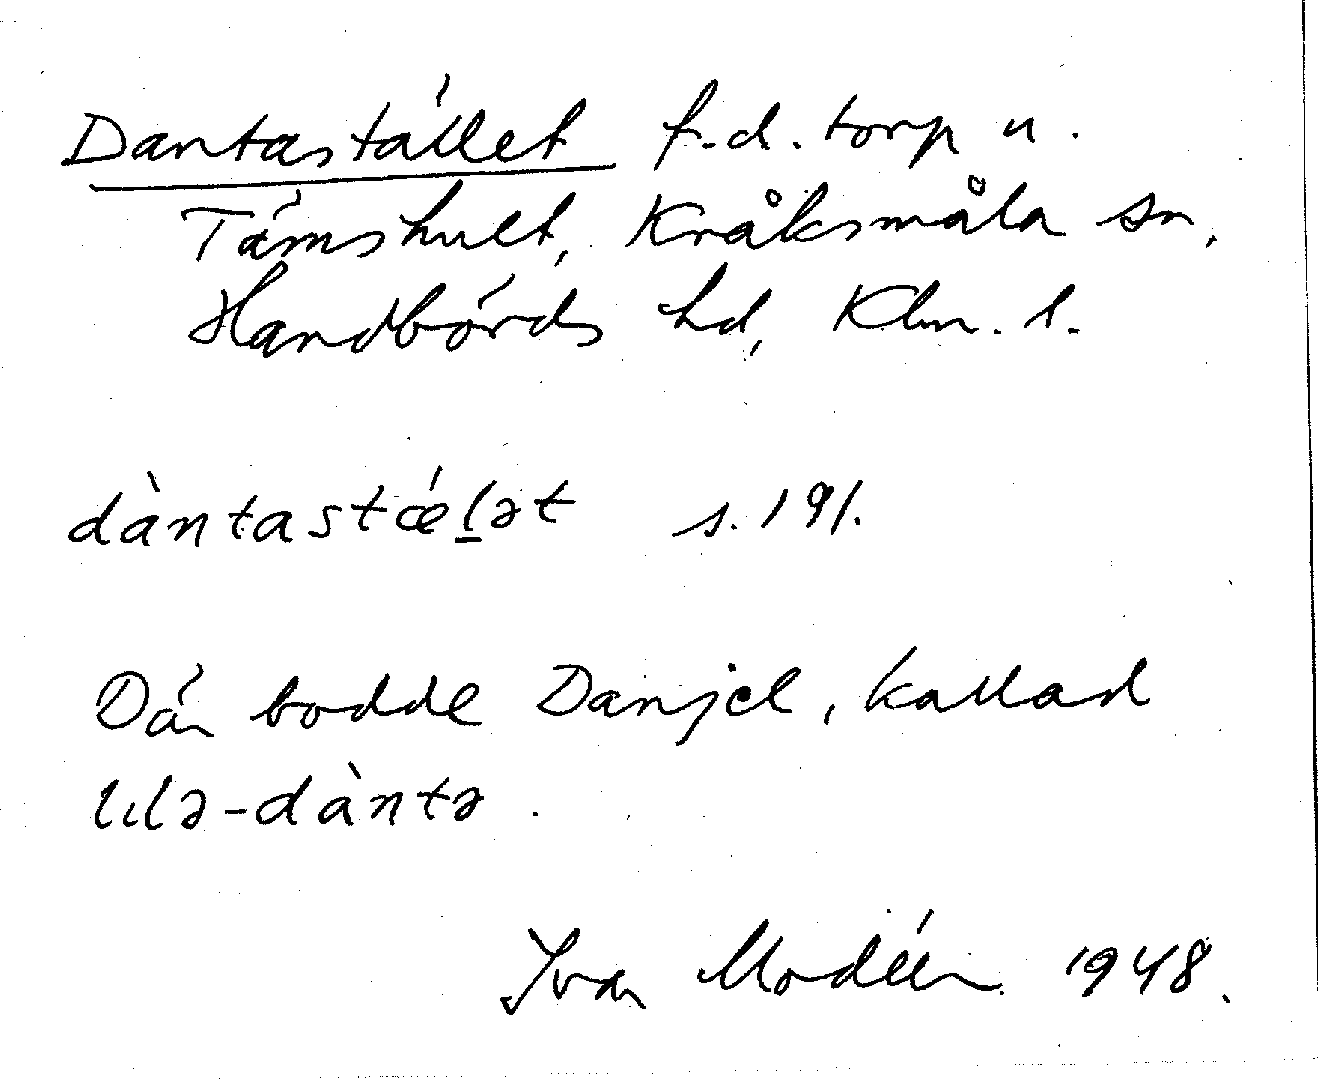 Dantastället f.d. torp u.
Tämshult, Kråksmåla sn,
Handbörds hd, Klm. l.
dàntastǽl̲ət s. 191.
Där bodde Danjel, kallad
lılə-dàntə.
Ivar Modéer 1948.